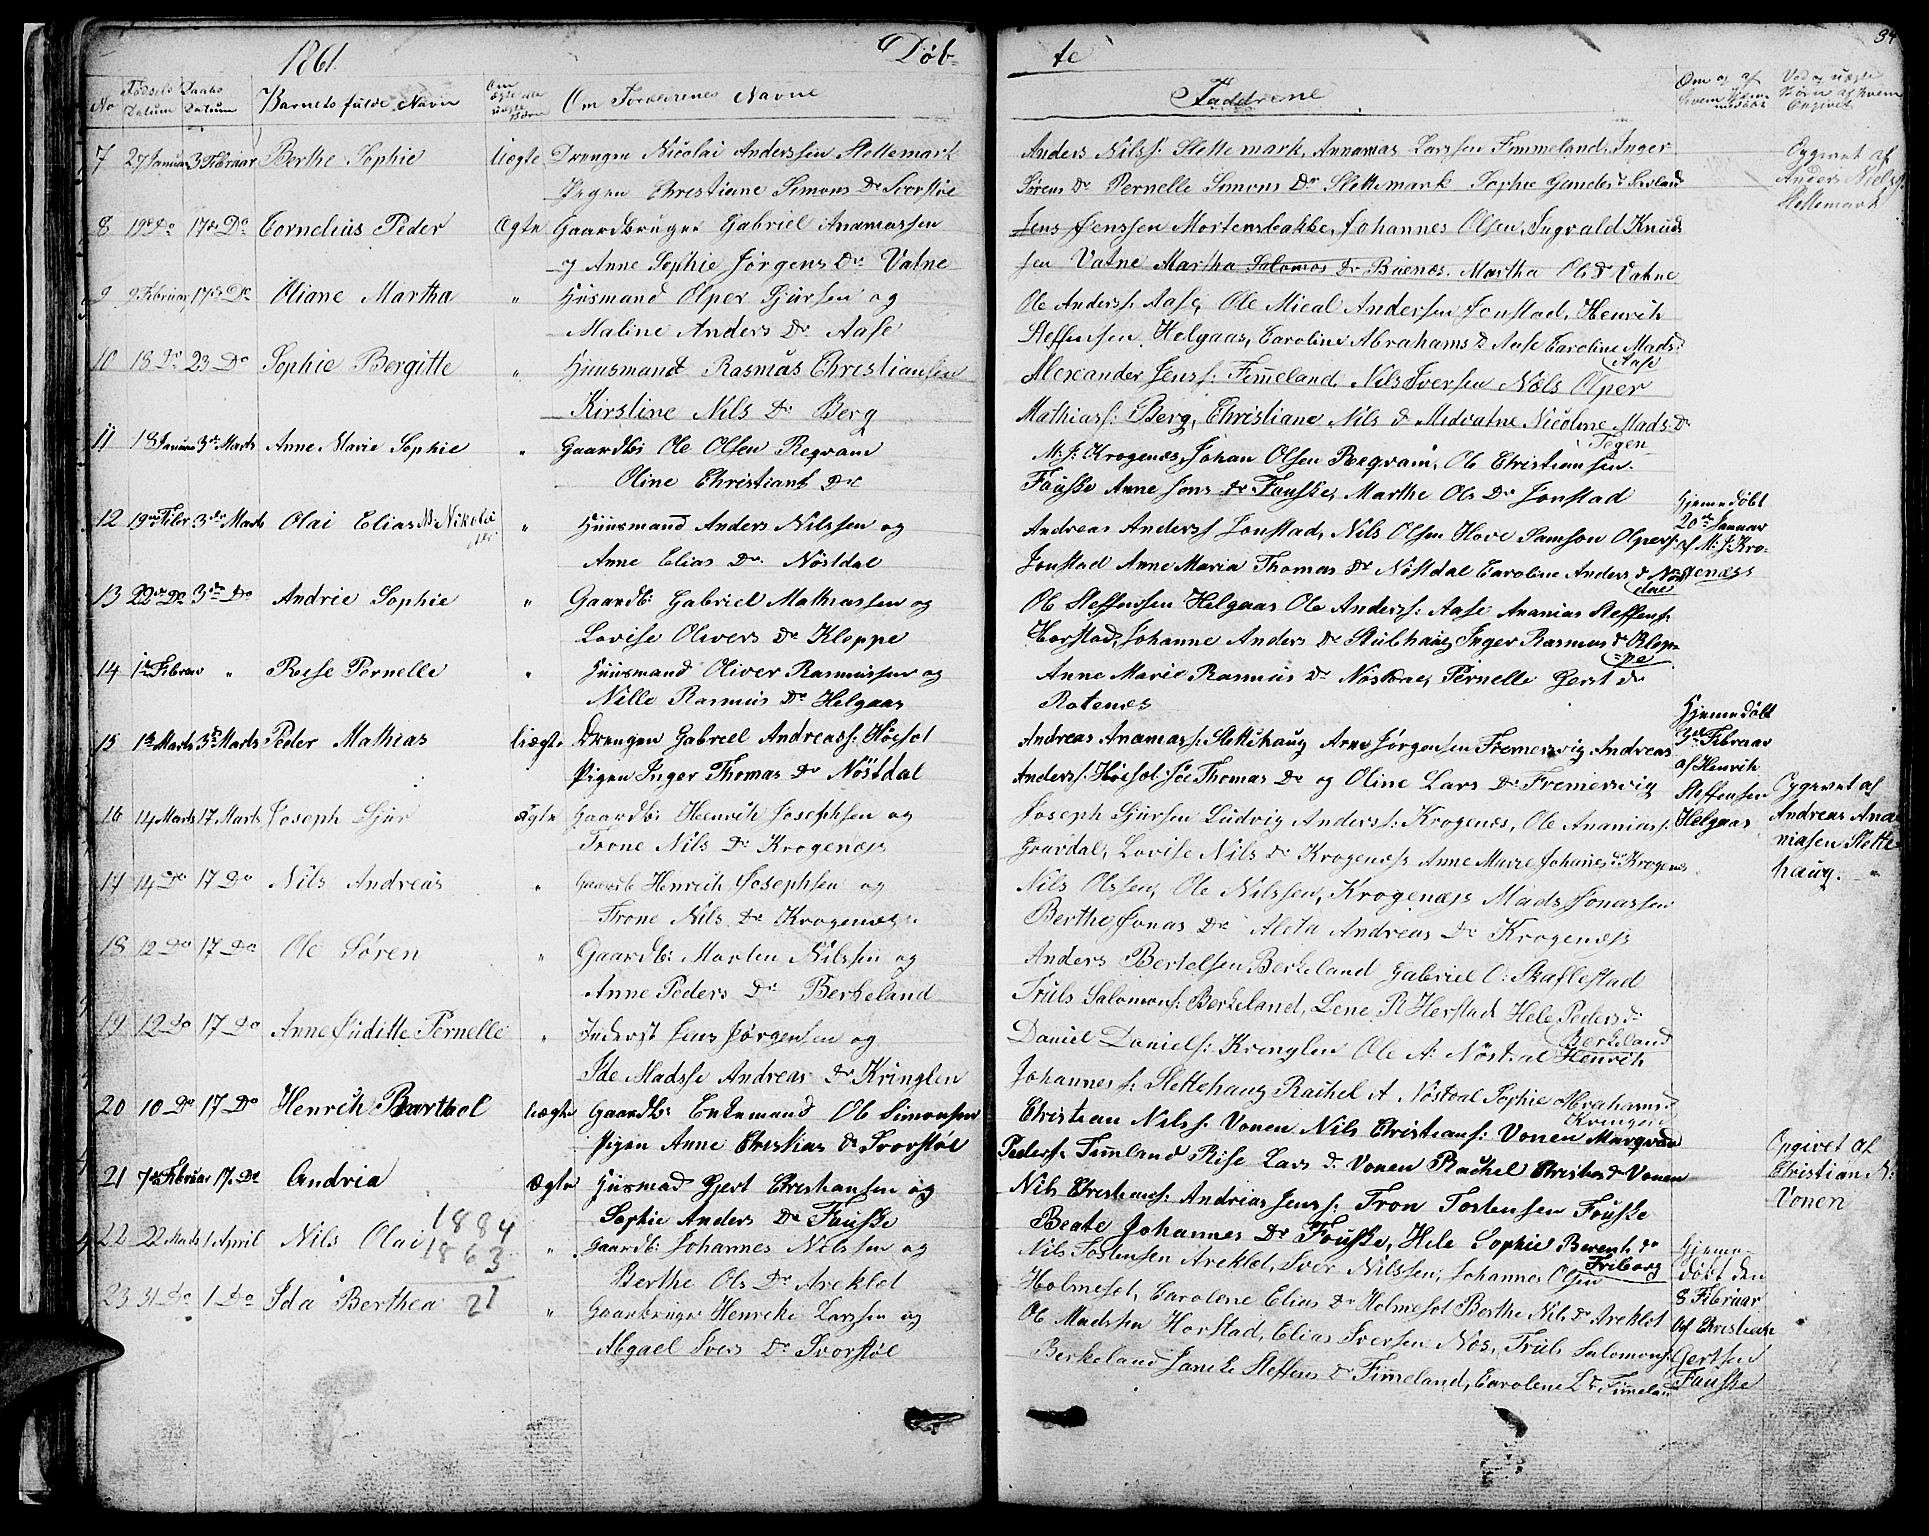 1861. Døb-
No Fødsels Datum Daabs Datum Barnets fulde Navn Om ægte eller uægte Børn Om Forældrenes Navne
7 27 Januar 3 Februar Berthe Sophie Uægte Drengen Nicolai Anderssen Slettemark
Pigen Christiane Simons Dr Svorstøe
8 19de Do 17de Do Cornelius Peder Ægte Gaardbruger Gabriel Ananiassen
og Anne Sophie Jørgens Dr Vatne
9 9 Februar 17de Do Oliane Martha " Huusmand Olper Gjursen og
Maline Anders Dr Aase
10 18 Do 23 Do Sophie Bergitte " Huusmand Rasmus Christiansen
Kirstine Nils Dr Berg
11 18 Januar 3de Marts Anne Marie Sophie " Gaardb: Ole Olsen Reqvam
Oline Christians Dr
12 19de Febr 3de Marts Olai Elias M: Nikolai " Huusmand Anders Nilssen og
Anne Elias Dr. Nöstdal
13 22de Do 3de Do Andrie Sophie " Gaardb: Gabriel Mathiassen og
Lovise Olivers Dr Kloppe
14 1de Februar " Rese Pernelle " Huusmand Oliver Rasmussen og
Nille Rasmus Dr Helgaas
15 1de Marts 3de Marts Peder Mathias Uægte Drengen Gabriel Andreass: Höesöl
Pigen Inger Thomas Dr Nöstdal
16 14 Marts 17 Marts Joseph Gjur Ægte Gaardb: Henrich Josephsen og
Trone Nils Dr Krogenæss
17 14 Do 17 Do Nils Andreas " Gaardb Henrich Josephsen og
Trone Nils Dr Krogenæss
18 12 Do 17 Do Ole Søren " Gaardb: Morten Nilssen og
Anne Peders Dr Berkeland
19 12 Do 17 Do Anne Juditte Pernelle " Inderst Jens Jørgensen og
Ide Madsse Andreas Dr Kringlen
20 10 Do 17 Do Henrik Barthol Uægte Gaardb: Enkemand Ole Simonsen
Pigen Anne Christias Dr Svorstøl
21 7de Februar 17de Do Andria Ægte Huusmad Gjert Christiansen og
Sophie Anders Dr Fauske
22 22 Marts 1 April Nils Olai 1884 " Gaardb: Johannes Nilssen og
1863
Berthe Ols Dr Areklet
23 31 Do 1 Do Ida Berthea 21 " Gaarbruger Henreke Larssen og
Abgael Ivers Dr Svorstøl
te 34
Faddrene Om og af hvem Hjemmedøbt Ved uægte Børn af hvem Opgivet
Anders Nilss: Slettemark, Annanias Larssen Fimmeland, Inger
Sirens Dr Pernelle Simons Dr Slettemark Sophie
Opgivet af
Anders Niels:
Slettemark
Jens Jenssen Mortensbakke, Johannes Olsen, Ingvald Knud
sen Vatne Martha Salomos Dr Buenæs, Martha Ols Dr Vatne
Ole Anderss: Aase, Ole Mical Andersen Jonstad, Henrich
Steffensen Helgaas, Caroline Abrahams D Aase Caroline Mads
Aase
Alexander Jenss: Fimmeland, Nils Iversen Næls Olper
Mathiass: Berg, Christiane Nils D Medvatne Nicoline Mads: Dr
Tegen
M: J: Krogenæs, Johan Olsen Reqvam, Ole Christiansen
Fauske Anne Jons Dr Fauske, Marthe Ols Dr Jonstad
Andreas Anderss Jonstad, Nils Olsen Hove Samson Olpers:
Jonstad Anne Maria Thomas Dr Nöstdal Caroline Anders D Nöst
dal
Hjemmedöbt
20de Januar
af M: J: Kro-
genæss
Ole Steffensen Helgaas Ole Anderss: Aase Ananias Steffens:
Horstad, Johanne Anders Dr Stubhaug Inger Rasmus Dr Klop-
=pe
Anne Marie Rasmus Dr Nöstdal, Pernelle Gerst Dr
Rotenæs
Andreas Ananiass: Slettehaug Arne Jørgensen Fremersvig Andreas
Anderss: Höesöl Thomas Dr og Oline Lars Dr Fremersvig
Hjemmedöbt
3de Februar
af Henrich
Steffensen
Helgaas
Opgivet af
Andreas Ana
niasen Slette
haug.
Joseph Gjursen Ludvig Anderss: Krogenæs, Ole Ananiass:
Gravdal, Lovise Nils Dr Krogenæss Anne Marie Johanes Dr Krogenæs
Nils Olssen, Ole Nilssen, Krogenæss Mads Jonassen
Berthe Jonas Dr Aleta Andreas Dr Krogenæss
Anders Bertelsen Berkeland Gabriel O: Skaflestad
Truls Salomons: Berkeland, Lene R Herstad Hele Peders Dr
Berkeland
Daniel Daniels: Kringlen Ole A: Nöstdal Henrich
Johanness: Slettehaug Rachel A Nöstdal Sophie Abrahams D
Kringlen
Christian Nilss: Vonen Nils Christians: Vonen Marqvard
Peders: Fimland Rise Lars D Vonen Rachel Christies Dr Vonen
Opgivet af
Christian N:
Vonen
Nils Christians: Andreas Jenss: Tron Tostensen Fauske
Beate Johannes Dr Fauske, Hele Sophie Berents Dr
Friborg
Nils Tostensen Areklet, Iver Nilssen, Johannes Olsen
Holmeset, Carolene Elias Dr Holmeset Berthe Nils Dr Areklet
Hjemme-
döbt den
8 Februar
af Christian
Gertsen
Fauske
Ole Madssen Horstad, Elias Iversen Nös, Truls Salomons:
Berkeland Janeke Steffens Dr Fimmeland, Carolene L Dr Fimmeland